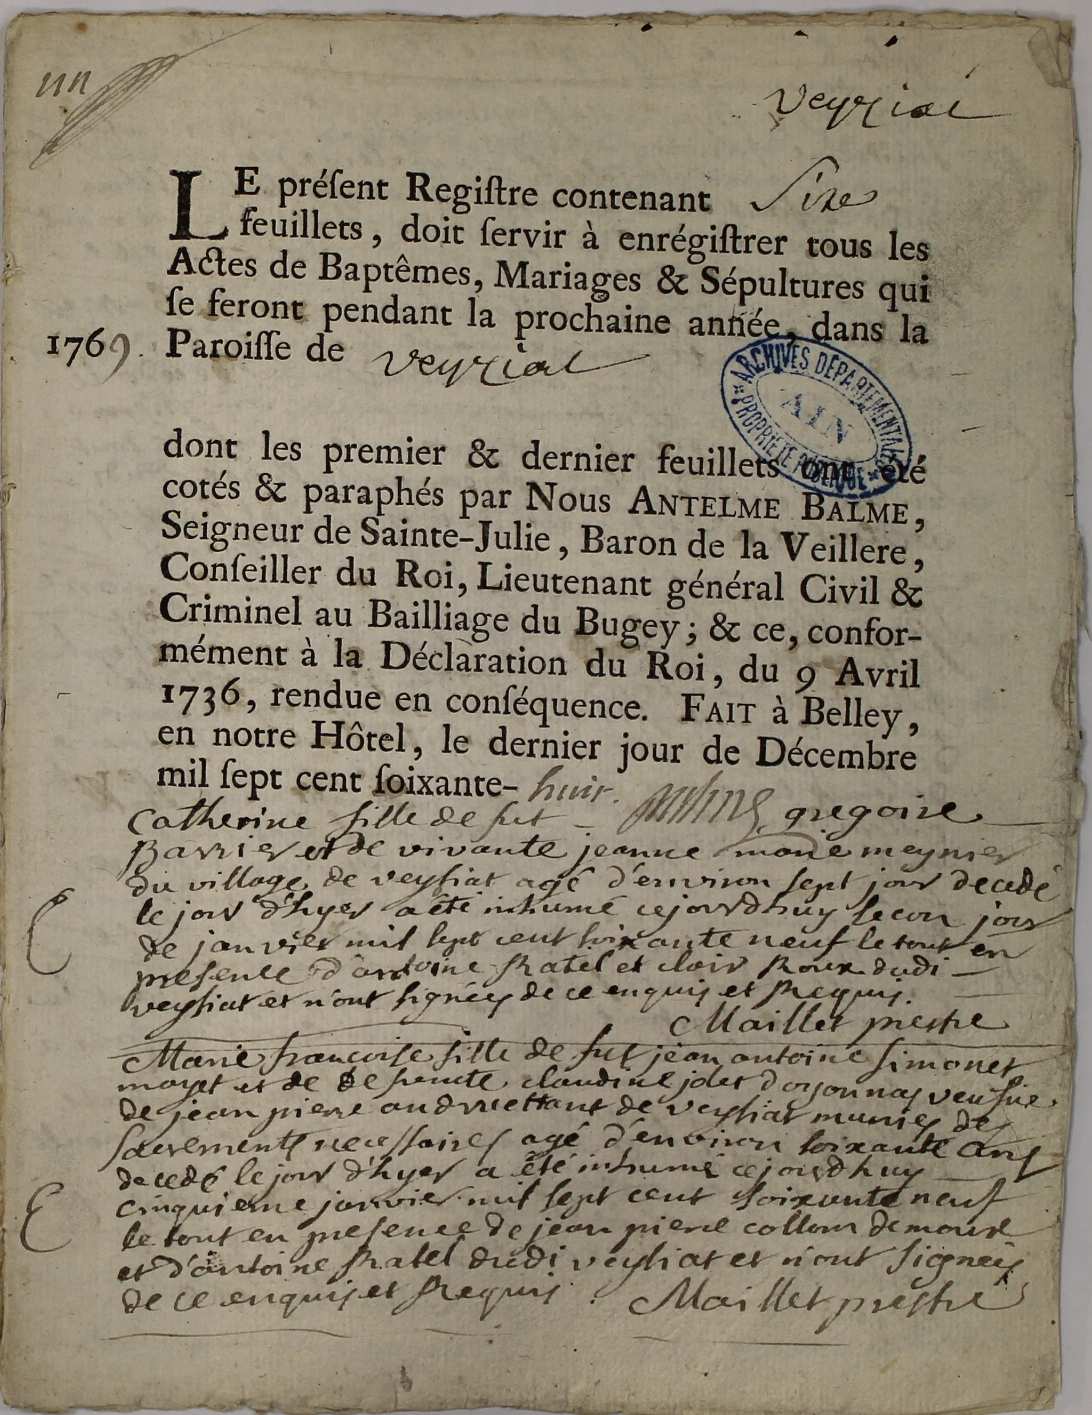 veyziat
LE préſent Regiſtre contenant Sixe
feuillets, doit ſervir à enrégiſtrer tous les
Actes de Baptêmes, Mariages & Sépultures qui
ſe feront pendant la prochaine année, dans la
1769. Paroiſſe de veyziat
ARCHIVES DEPARTEMENTALES
AIN
PROPRIETE PUBLIQUE
dont les premier & dernier feuillets ont été
cotés & paraphés par Nous ANTELME BALME,
Seigneur de Sainte-Julie, Baron de la Veillere,
Conſeiller du Roi, Lieutenant général Civil &
Criminel au Bailliage du Bugey; & ce, confor-
mément à la Déclaration du Roi, du 9 Avril
1736, rendue en conſéquence. FAIT à Belley,
en notre Hôtel, le dernier jour de Décembre
mil ſept cent ſoixante-huit.
Catherine fille de fut gregoire
Barrier et de vivante jeanne marie meynier
du village de veysiat agé d'environ sept jour decedé
le jour d'hyer a été inhumé cejourdhuy secon jour
de janvier mil sept cent soixante neuf le tout en
presence d'antoine Ratel et clair Roux dudi
veysiat et n'ont signéey de ce enquis et Requis.
Maillet prestre
Marie francoise fille de fut jean antoine simonet
et de claudine jolet d'oyonnay
de jean pierre de veysiat munies des
sacrements necessaires agé d'environ soixante ans
decedé le jour d'hyer a été inhumé cejourdhuy
cinquieme janvier mil sept cent soixante neuf
le tout en presence de jean pierre collom
et d'antoine Ratel dudi veysiat et n'ont signéey
de ce enquis et Requis. Maillet prestre